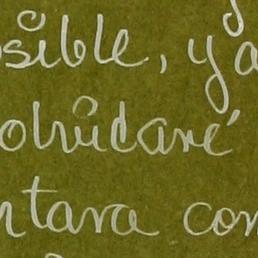 sible, ya
olvidaré
ntara con